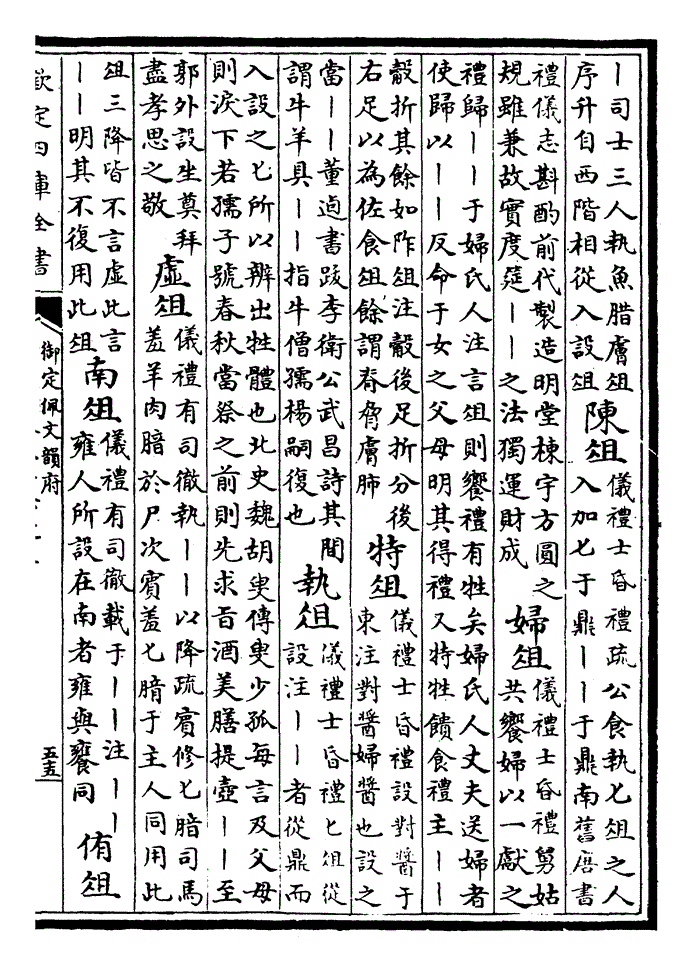 丨司士三人執魚腊膚俎
序升自西階相從入設俎
陳俎
儀禮士昏禮疏公食執匕俎之人
入加匕于鼎丨丨于鼎南舊唐書
禮儀志斟酌前代製造明堂棟宇方圓之
規雖兼故實度筵丨丨之法獨運財成
婦俎
儀禮士昏禮舅姑
共饗婦以一獻之
禮歸丨丨于婦氏人注言俎則饗禮有牲矣婦氏人丈夫送婦者
使歸以丨丨反命于女之父母明其得禮又特牲饋食禮主丨丨
觳折其餘如阼俎注觳後足折分後
右足以為佐食俎餘謂脊脅膚肺
特俎
儀禮士昏禮設對醬于
東注對醬婦醬也設之
當丨丨董逌書跋李衛公武昌詩其間
謂牛羊具丨丨指牛僧孺楊嗣復也
執俎
儀禮士昏禮匕俎從
設注丨丨者從鼎而
入設之匕所以辨出牲體也北史魏胡叟傳叟少孤每言及父母
則淚下若孺子號春秋當祭之前則先求旨酒美膳提壺丨丨至
郭外設坐奠拜
盡孝思之敬
虛俎
儀禮有司徹執丨丨以降疏賓修匕湆司馬
羞羊肉湆於尸次賓羞匕湆于主人同用此
俎三降皆不言虛此言
丨丨明其不復用此俎
南俎
儀禮有司徹載于丨丨注丨丨
雍人所設在南者雍與饔同
侑俎
欽定四庫全書
御定佩文韻府